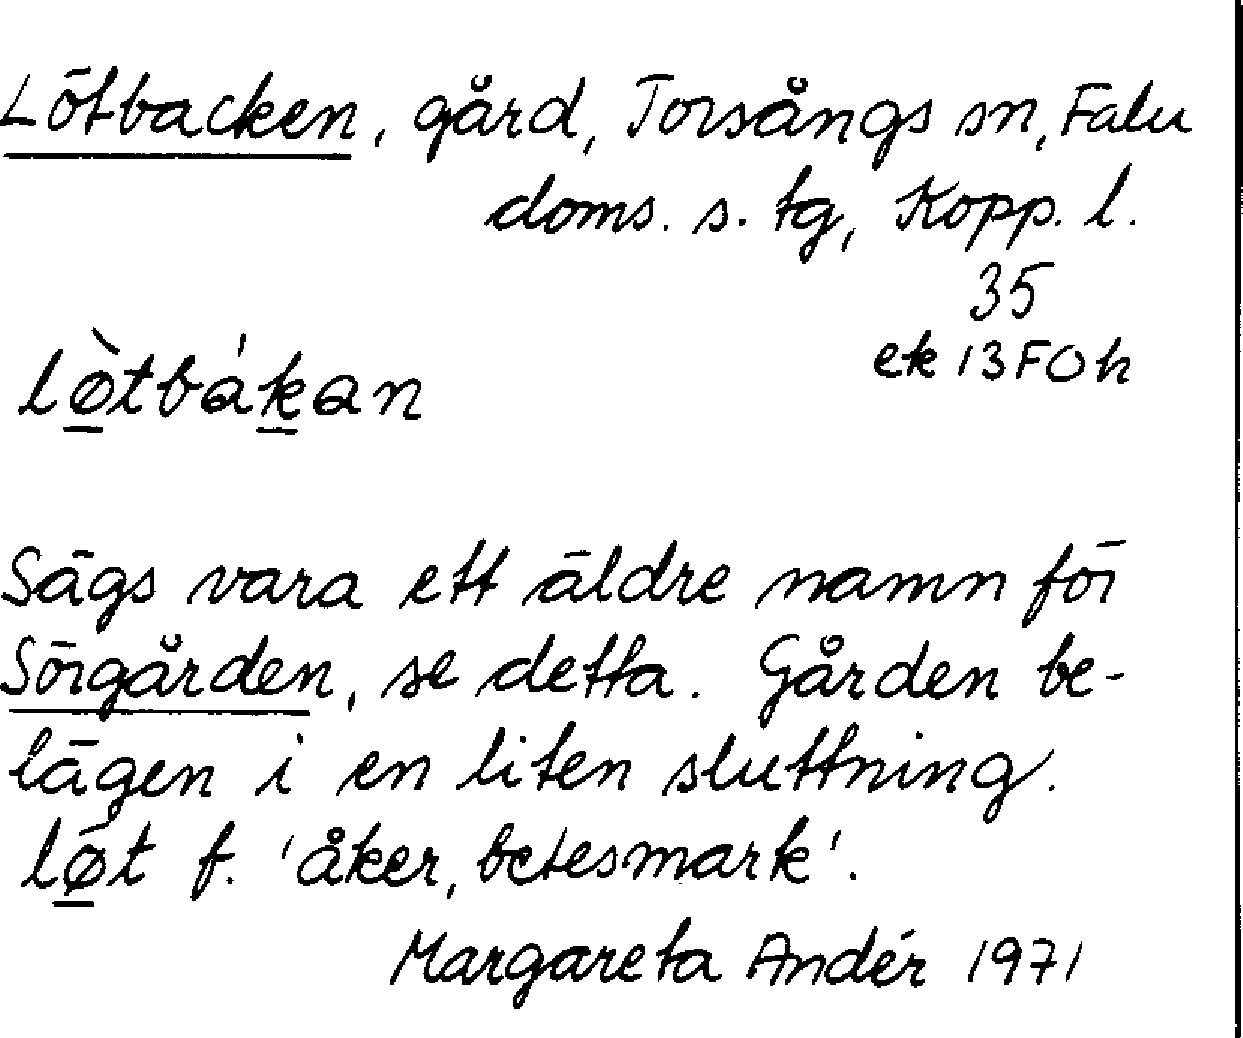 Lötbacken, gård, Torsångs sn, Falu
doms. s. tg, Kopp. l.
35
ek 13FOh
lø̀tbákan
Sägs vara ett äldre namn för
Sörgården, se detta. Gården be-
lägen i en liten sluttning.
lǿt f. 'åker, betesmark'.
Margareta Andér 1971